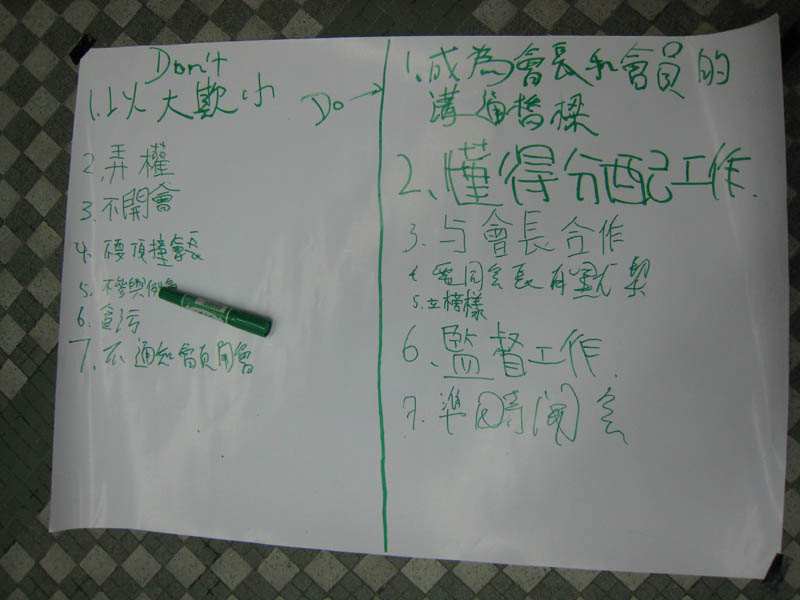 Don't
1.以大欺小
2.弄權
3.不開會
4.硬頂撞會長
5.不參與例會
6.貪污
7.不通知會員開會
Do →
1.成為會長和會員的
溝通橋樑
2、懂得分配工作.
3.与會長合作
4.要同会長有默契
5.立榜樣
6、監督工作.
7.準時開会